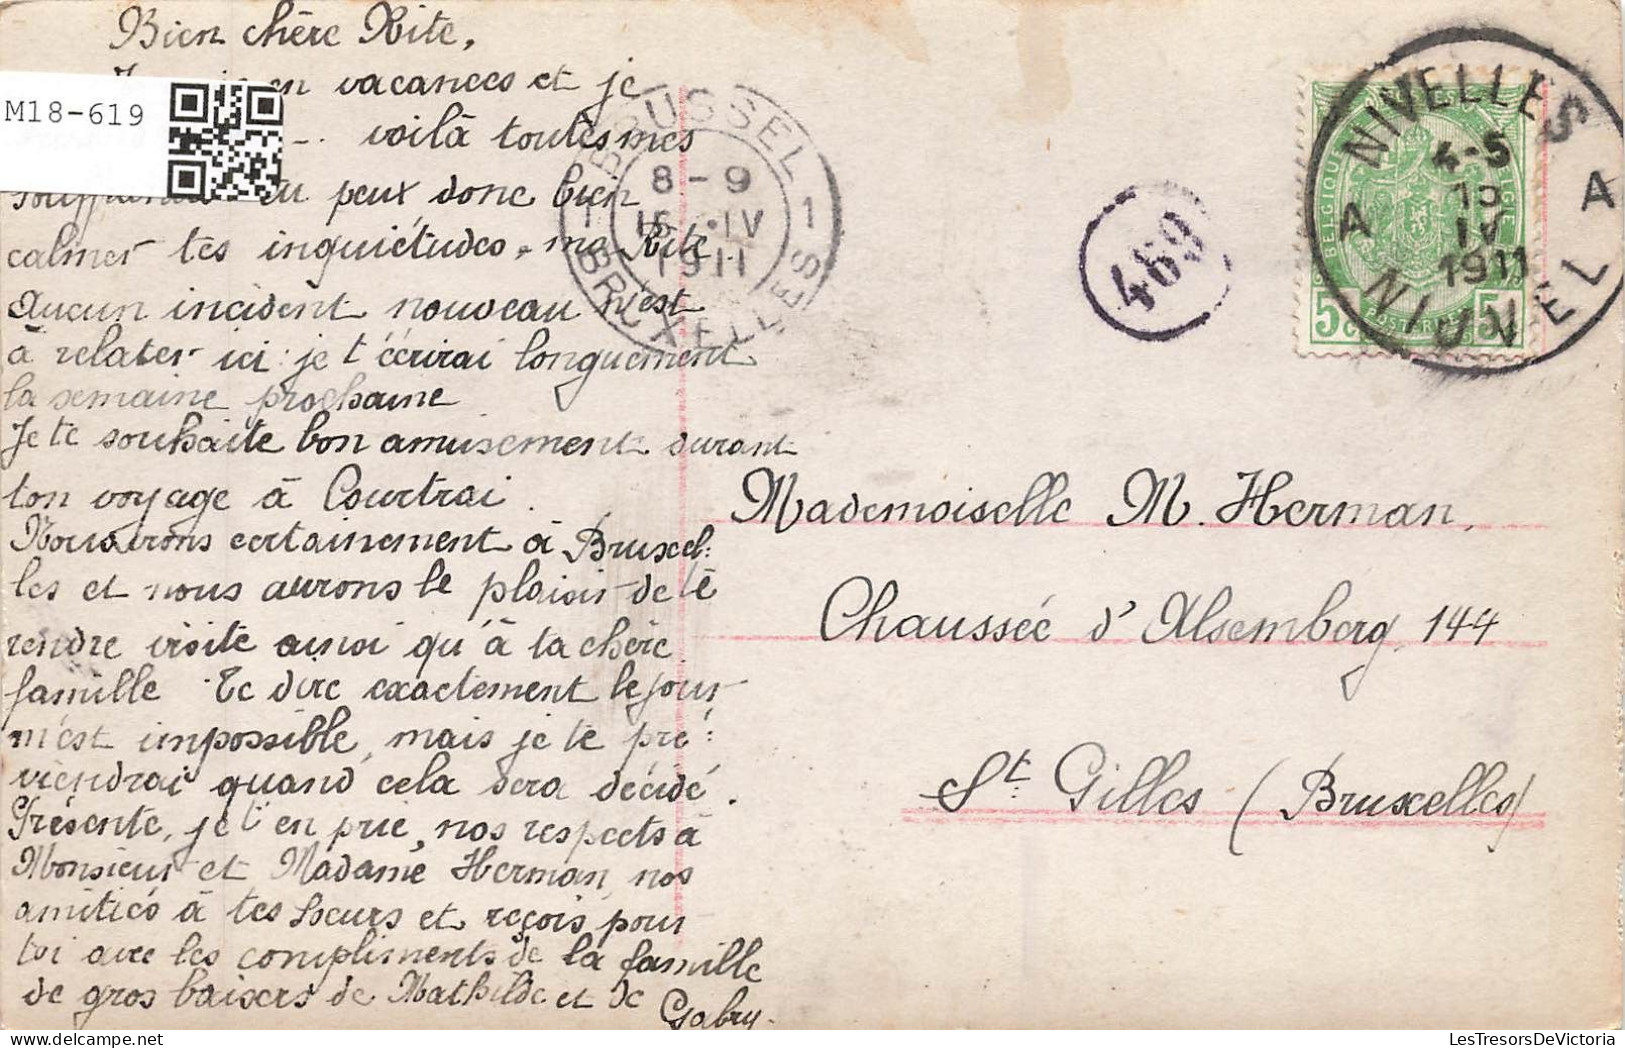 Bien chère Rite,
en vacances et je
M18-619
voilà toutes mes
tu peux donc bien
calmer tes inquiétudes, ma Rite.
Aucun incident nouveau n'est
à relater ici : je t'écrirai longuement
la semaine prochaine
Je te souhaite bon amusement durant
ton voyage à Courtrai.
Nous irons certainement à Bruxel-
les et nous aurons le plaisir de te
rendre visite ainsi qu'à ta chère
famille Te dire exactement le jour
m'est impossible, mais je te pré-
viendrai quand cela sera décidé.
Présente, je t'en prie, nos respects à
Monsieur et Madame Herman, nos
amitiés à tes soeurs et reçois pour
toi avec les compliments de la famille
de gros baisers de Mathilde et de
Gabry.
BRUSSEL 1
8-9
15 IV
1911
BRUXELLES 1
469
NIVELLES
A A
4-5
15
IV
1911
NIJVEL
BELGIQUE
BELGIE
5 5
Mademoiselle M. Herman,
Chaussée d'Alsemberg, 144
St. Gilles (Bruxelles)
LesTresorsDeVictoria